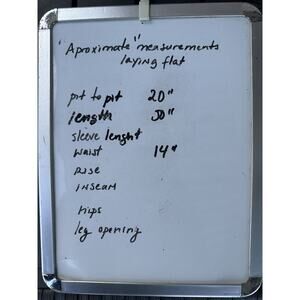 "Aproximate" measurements
laying flat
pit to pit 20"
length 30"
sleeve lenght
waist 14"
RISE
INSEAM
hips
leg opening